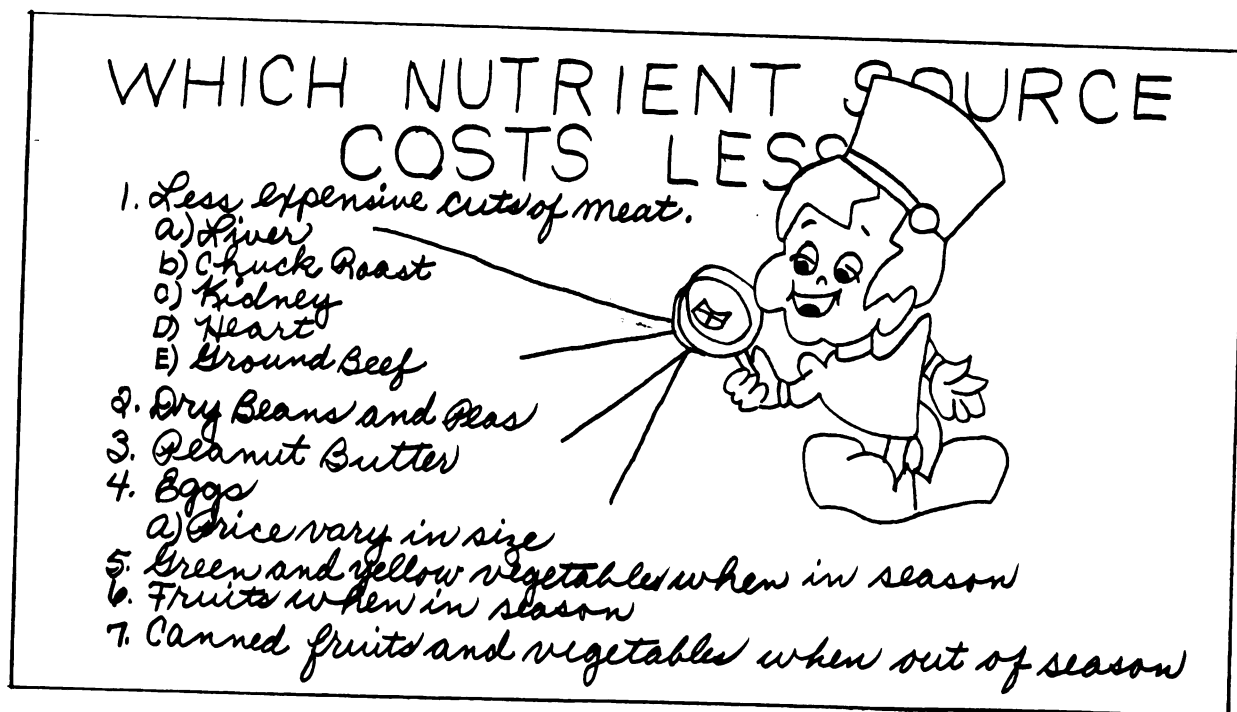 WHICH NUTRIENT SOURCE
COSTS LESS
1. Less expensive cuts of meat.
a) Liver
b) Chuck Roast
c) Kidney
D) Heart
E) Ground Beef
2. Dry Beans and Peas
3. Peanut Butter
4. Eggs
a) Price vary in size
5. Green and yellow vegetables when in season
6. Fruits when in season
7. Canned fruits and vegetables when out of season